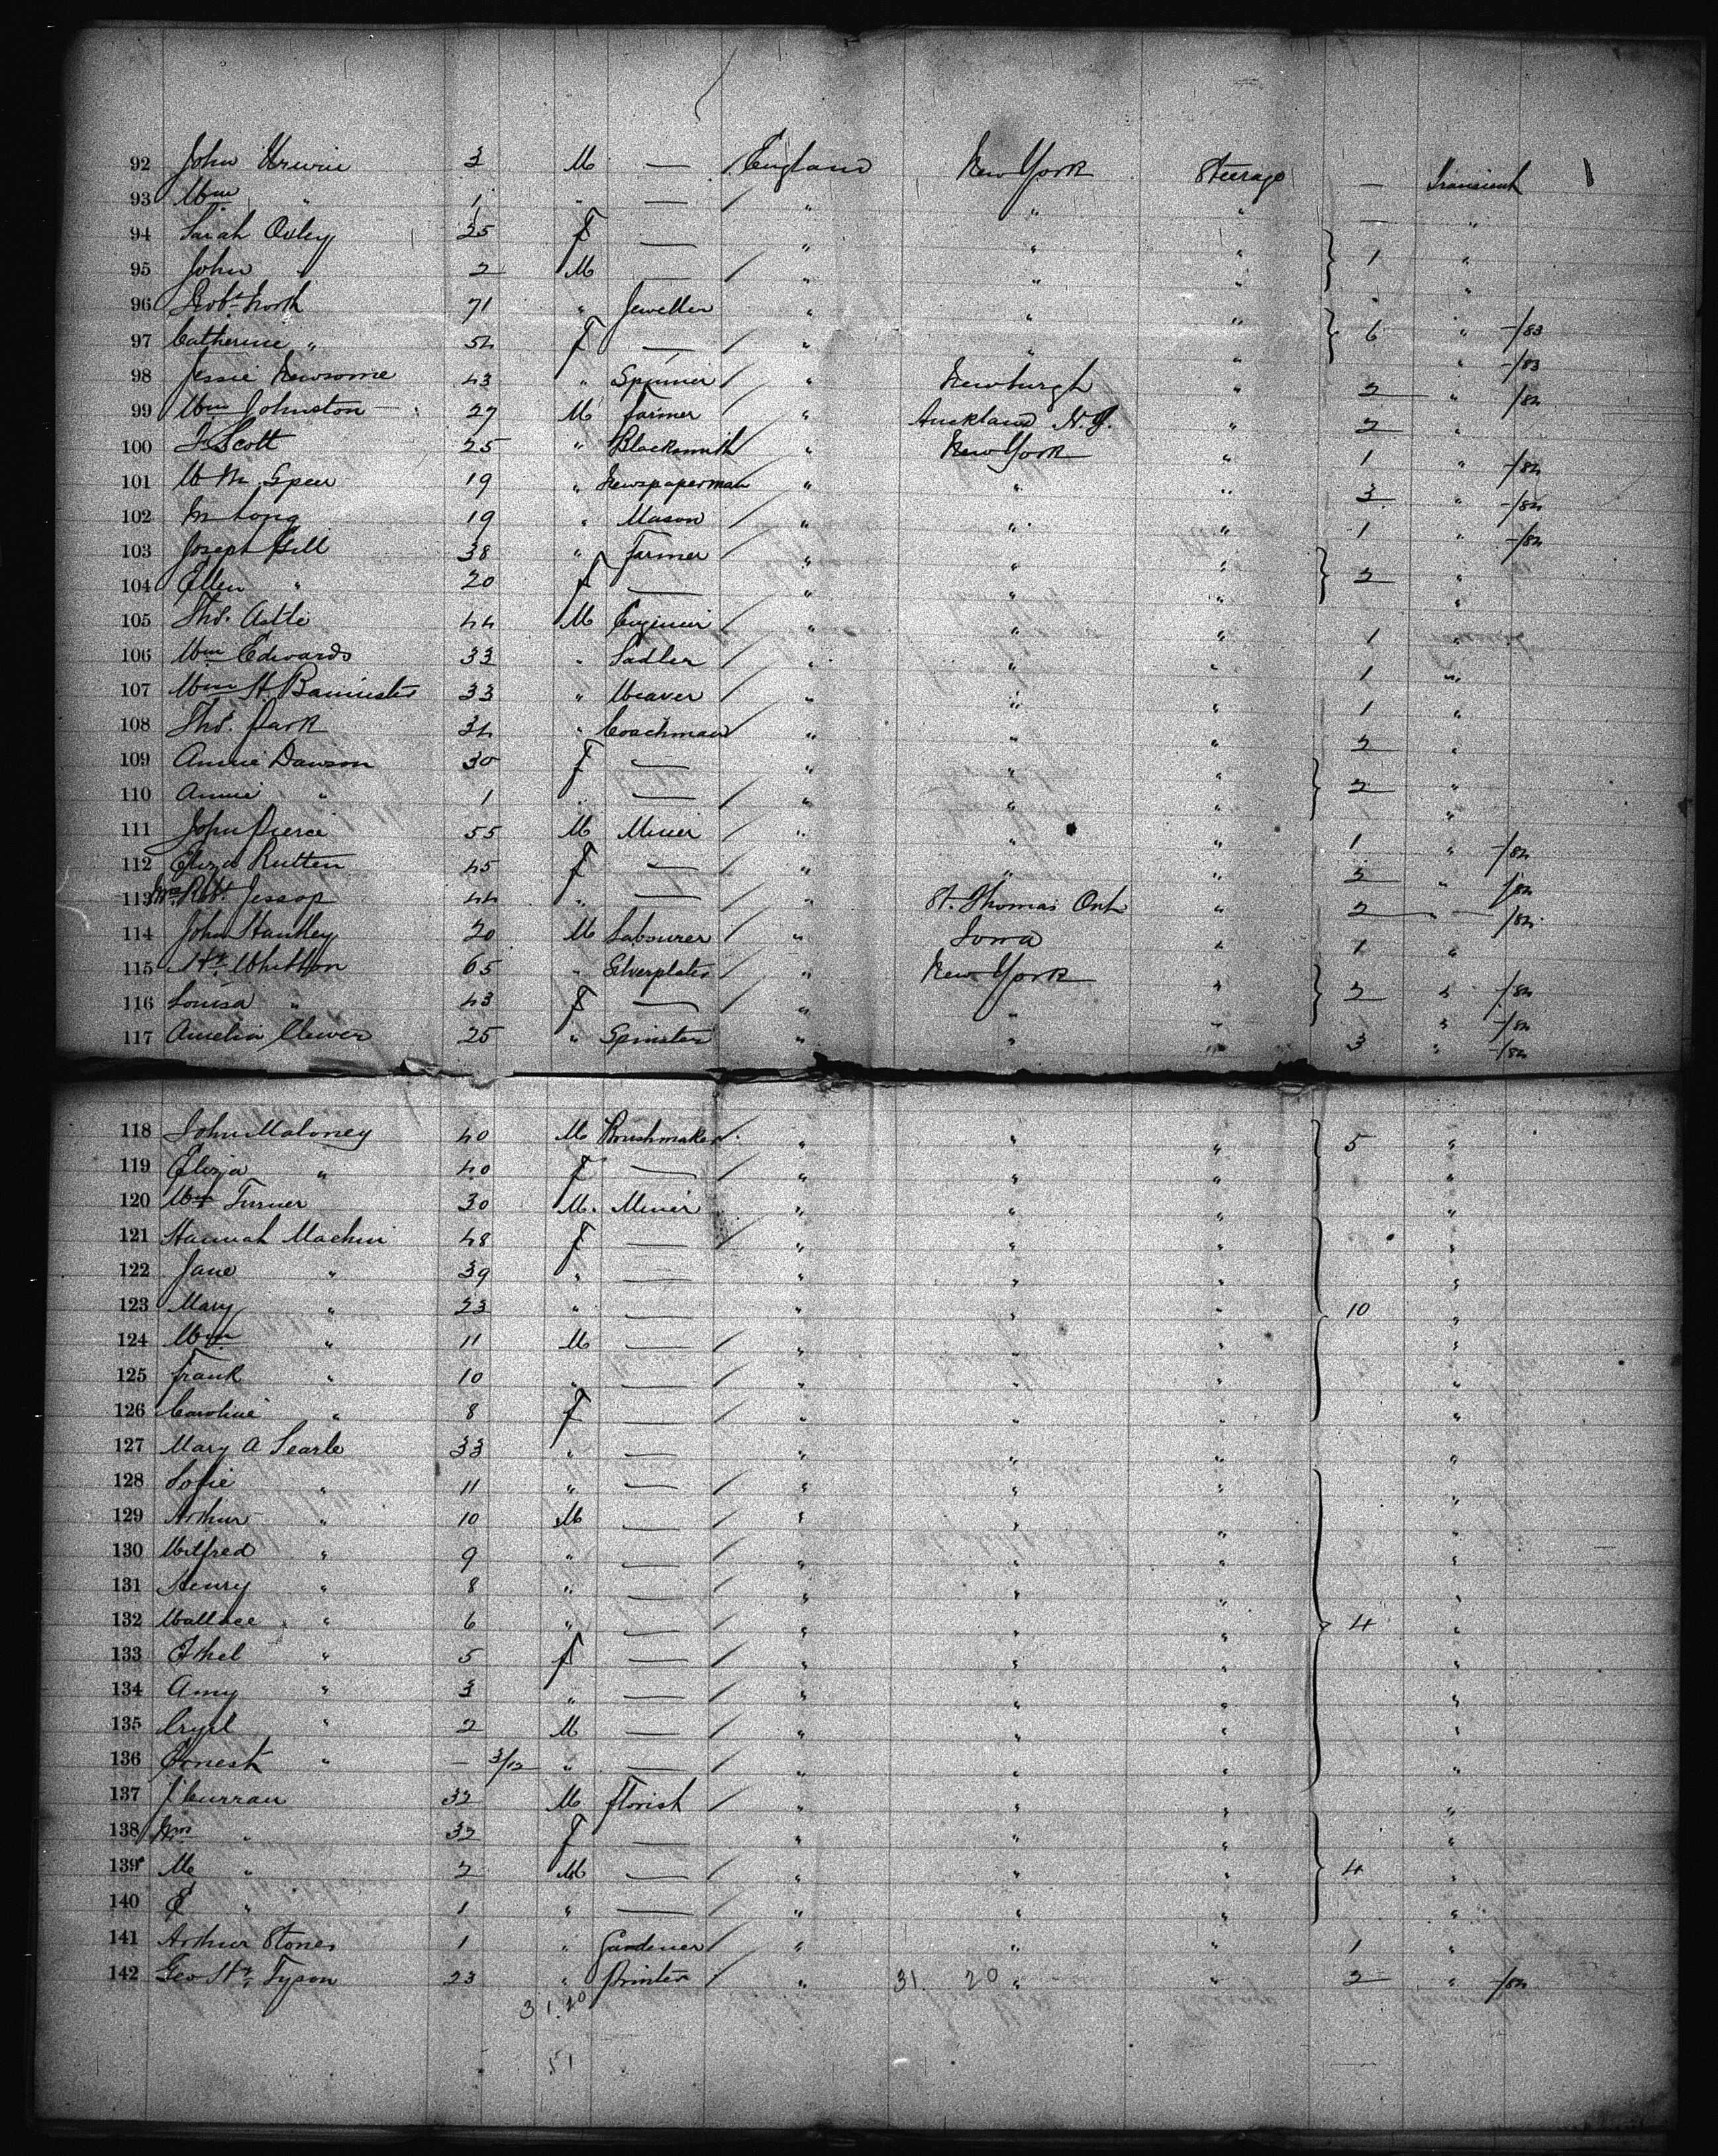 92 John Urwin 3 M — / England New York Steerage — Transient
93 Wm " 1 " — / " " " — "
94 Sarah Oxley 25 F — " " " 1 "
95 John " 2 M — / " " " "
96 Robt North 71 " Jeweller " " " 6 " -/83
97 Catherine " 54 F — / " " " " -/83
98 Jessie Newsome 43 " Spinner / " Newburgh " 2 " /82
99 Wm Johnston 27 M Farmer / " Auckland N.Z. " 2 "
100 J Scott 25 " Blacksmith " New York " 1 " -/82
101 W M Speer 19 " Newspaperman " " " 3 " -/82
102 M Long 19 " Mason / " " " 1 " -/82
103 Joseph Gill 38 " Farmer / " " " 2 "
104 Ellen " 20 F — / " " " "
105 Thos. Astle 44 M Engineer / " " " 1 "
106 Wm Edwards 33 " Sadler / " " " 1 "
107 Wm H. Bannister 33 " Weaver / " " " 1 "
108 Thos. Park 34 " Coachman / " " " 2 "
109 Annie Dawson 30 F — " " " 2 "
110 Annie " 1 " — / " " " "
111 John Pierce 55 M Miner / " " " 1 " -/82
112 Eliza Rutten 45 F — / " " " 2 " /82
113 Mrs Robt. Jessop 44 " — / " St. Thomas Ont " 2 " /82
114 John Hantley 20 M Labourer / " Iowa " 1 "
115 Hy. Whitton 65 " Silverplater / " New York " 2 " -/82
116 Louisa " 43 F — / " " " " -/82
117 Amelia Clewer 25 " Spinster " " " 3 " -/82
118 John Maloney 40 M Brushmaker " " " 5 "
119 Eliza " 40 F — / " " " "
120 Wm Turner 30 M. Miner / " " " "
121 Hannah Machin 48 F — / " " " "
122 Jane " 39 " — " " " "
123 Mary " 23 " — " " " 10 "
124 Wm " 11 M — / " " " "
125 Frank " 10 " — / " " " "
126 Caroline " 8 F — / " " " "
127 Mary A Searle 33 " — " " " "
128 Sofie " 11 " — / " " " "
129 Arthur " 10 M — / " " " "
130 Wilfred " 9 " — / " " " "
131 Henry " 8 " — / " " " "
132 Wallace " 6 " — / " " " 4 "
133 Ethel " 5 F — / " " " "
134 Amy " 3 " — / " " " "
135 Cryil " 2 M — / " " " "
136 Ernest " — 3/12 " — / " " " "
137 J Curran 32 M Florist / " " " "
138 Mrs " 32 F — " " " "
139 M " 2 M — / " " " 4 "
140 E " 1 " — / " " " "
141 Arthur Stones 1 " Gardener / " " " 1 "
142 Geo Hy. Tyson 23 " Printer / " 31 20 " " 2 " -/82
31.20
51